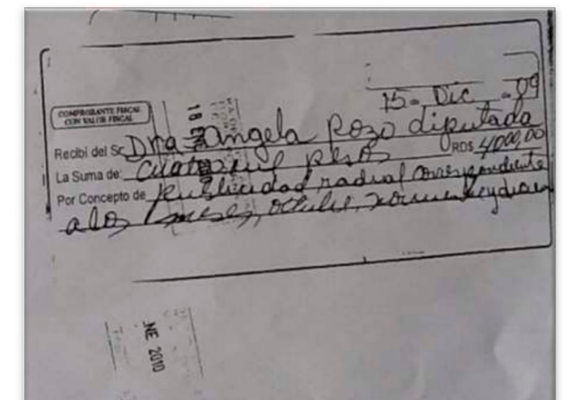 15 - Dic - 09
COMPROBANTE FISCAL
CON VALOR FISCAL
Recibi del Sr. Dra angela Pozo diputada
La Suma de: Cuatro mil pesos RD$ 4000,00
Por Concepto de Publicidad radial correspondiente
a los meses, octubre,
NE 2010